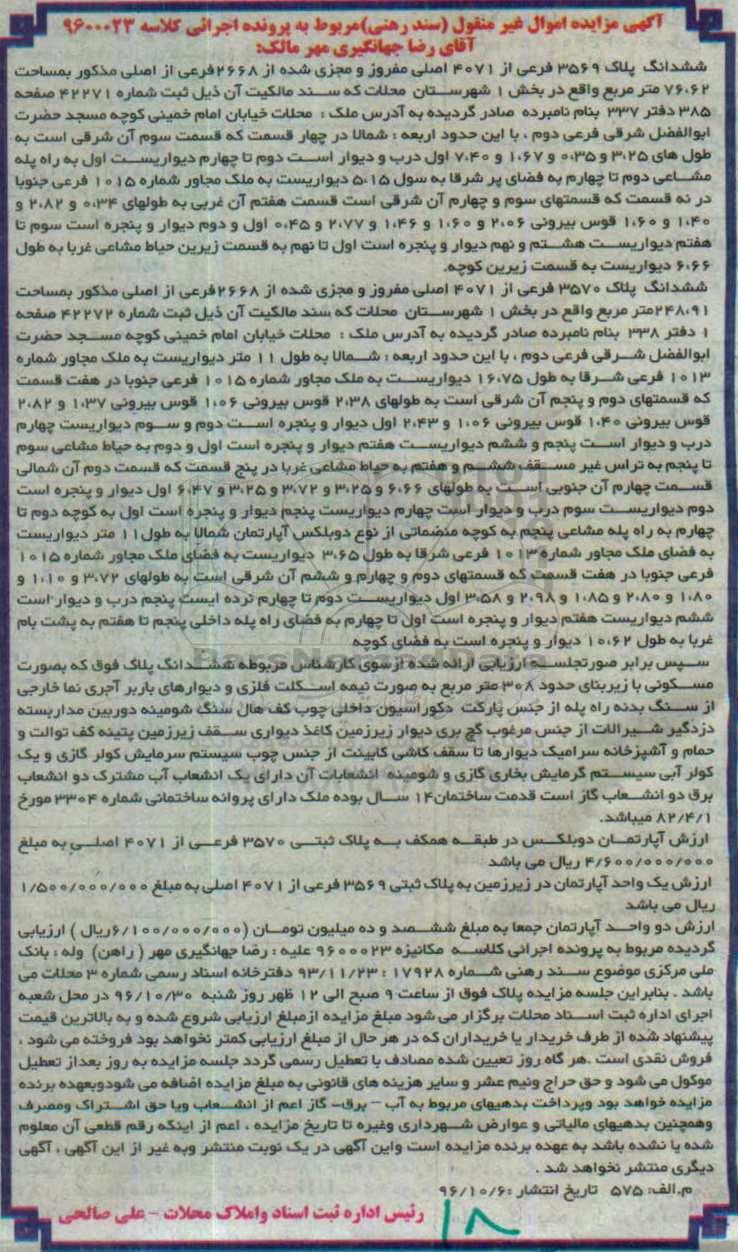 آگهی مزایده اموال غیر منقول (سند رهنی)مربوط به پرونده اجرائی کلاسه ۹۶۰۰۰۲۳
آقای رضا جهانگیری مهر مالک:
ششدانگ پلاک ۳۵۶۹ فرعی از ۴۰۷۱ اصلی مفروز و مجزی شده از ۲۶۶۸فرعی از اصلی مذکور بمساحت
۷۶.۶۲ متر مربع واقع در بخش ۱ شهرستان محلات که سند مالکیت آن ذیل ثبت شماره ۴۲۲۷۱ صفحه
۳۸۵ دفتر ۳۳۷ بنام نامبرده صادر گردیده به آدرس ملک : محلات خیابان امام خمینی کوچه مسجد حضرت
ابوالفضل شرقی فرعی دوم ، با این حدود اربعه : شمالا در چهار قسمت که قسمت سوم آن شرقی است به
طول های ۳.۲۵ و ۰.۳۵ و ۱.۶۷ و ۷.۴۰ اول درب و دیوار است دوم تا چهارم دیواریست اول به راه پله
مشاعی دوم تا چهارم به فضای پر شرقا به سول ۵.۱۵ دیواریست به ملک مجاور شماره ۱۰۱۵ فرعی جنوبا
در نه قسمت که قسمتهای سوم و چهارم آن شرقی است قسمت هفتم آن غربی به طولهای ۰.۳۴ و ۲.۸۲ و
۱.۴۰ و ۱.۶۰ قوس بیرونی ۲.۰۶ و ۱.۶۰ و ۱.۴۶ و ۲.۷۷ و ۰.۴۵ اول و دوم دیوار و پنجره است سوم تا
هفتم دیواریست هشتم و نهم دیوار و پنجره است اول تا نهم به قسمت زیرین حیاط مشاعی غربا به طول
۶.۶۶ دیواریست به قسمت زیرین کوچه.
ششدانگ پلاک ۳۵۷۰ فرعی از ۴۰۷۱ اصلی مفروز و مجزی شده از ۲۶۶۸فرعی از اصلی مذکور بمساحت
۲۴۸.۹۱متر مربع واقع در بخش ۱ شهرستان محلات که سند مالکیت آن ذیل ثبت شماره ۴۲۲۷۲ صفحه
۱ دفتر ۳۳۸ بنام نامبرده صادر گردیده به آدرس ملک : محلات خیابان امام خمینی کوچه مسجد حضرت
ابوالفضل شرقی فرعی دوم ، با این حدود اربعه : شمالا به طول ۱۱ متر دیواریست به ملک مجاور شماره
۱۰۱۳ فرعی شرقا به طول ۱۶.۷۵ دیواریست به ملک مجاور شماره ۱۰۱۵ فرعی جنوبا در هفت قسمت
که قسمتهای دوم و پنجم آن شرقی است به طولهای ۲.۳۸ قوس بیرونی ۱.۰۶ قوس بیرونی ۱.۳۷ و ۲.۸۲
قوس بیرونی ۱.۴۰ قوس بیرونی ۱.۰۶ و ۲.۴۳ اول دیوار و پنجره است دوم و سوم دیواریست چهارم
درب و دیوار است پنجم و ششم دیواریست هفتم دیوار و پنجره است اول و دوم به حیاط مشاعی سوم
تا پنجم به تراس غیر مسقف ششم و هفتم به حیاط مشاعی غربا در پنج قسمت که قسمت دوم آن شمالی
قسمت چهارم آن جنوبی است به طولهای ۶.۶۶ و ۳.۲۵ و ۳.۷۲ و ۳.۲۵ و ۶.۴۷ اول دیوار و پنجره است
دوم دیواریست سوم درب و دیوار است چهارم دیواریست پنجم دیوار و پنجره است اول به کوچه دوم تا
چهارم به راه پله مشاعی پنجم به کوچه منضماتی از نوع دوبلکس آپارتمان شمالا به طول۱۱ متر دیواریست
به فضای ملک مجاور شماره ۱۰۱۳ فرعی شرقا به طول ۳.۶۵ دیواریست به فضای ملک مجاور شماره ۱۰۱۵
فرعی جنوبا در هفت قسمت که قسمتهای دوم و چهارم و ششم آن شرقی است به طولهای ۳.۷۲ و ۱.۱۰ و
۱.۸۰ و ۲.۸۰ و ۱.۸۵ و ۲.۹۸ و ۳.۵۸ اول دیواریست دوم تا چهارم نرده ایست پنجم درب و دیوار است
ششم دیواریست هفتم دیوار و پنجره است اول تا چهارم به فضای راه پله داخلی پنجم تا هفتم به پشت بام
غربا به طول ۱۰.۶۲ دیوار و پنجره است به فضای کوچه
سپس برابر صورتجلسه ارزیابی ارائه شده ازسوی کارشناس مربوطه ششدانگ پلاک فوق که بصورت
مسکونی با زیربنای حدود ۳۰۸ متر مربع به صورت نیمه اسکلت فلزی و دیوارهای باربر آجری نما خارجی
از سنگ بدنه راه پله از جنس پارکت دکوراسیون داخلی چوب کف هال سنگ شومینه دوربین مداربسته
دزدگیر شیرالات از جنس مرغوب گچ بری دیوار زیرزمین کاغذ دیواری سقف زیرزمین پتینه کف توالت و
حمام و آشپزخانه سرامیک دیوارها تا سقف کاشی کابینت از جنس چوب سیستم سرمایش کولر گازی و یک
کولر آبی سیستم گرمایش بخاری گازی و شومینه انشعابات آن دارای یک انشعاب آب مشترک دو انشعاب
برق دو انشعاب گاز است قدمت ساختمان۱۴ سال بوده ملک دارای پروانه ساختمانی شماره ۳۳۰۴ مورخ
۸۲/۴/۱ میباشد.
ارزش آپارتمان دوبلکس در طبقه همکف به پلاک ثبتی ۳۵۷۰ فرعی از ۴۰۷۱ اصلی به مبلغ
۴/۶۰۰/۰۰۰/۰۰۰ ریال می باشد
ارزش یک واحد آپارتمان در زیرزمین به پلاک ثبتی ۳۵۶۹ فرعی از ۴۰۷۱ اصلی به مبلغ ۱/۵۰۰/۰۰۰/۰۰۰
ریال می باشد
ارزش دو واحد آپارتمان جمعا به مبلغ ششصد و ده میلیون تومان (۶/۱۰۰/۰۰۰/۰۰۰ریال ) ارزیابی
گردیده مربوط به پرونده اجرائی کلاسه مکانیزه ۹۶۰۰۰۲۳ علیه : رضا جهانگیری مهر ( راهن) وله : بانک
ملی مرکزی موضوع سند رهنی شماره ۱۷۹۲۸ : ۹۳/۱۱/۲۳ دفترخانه اسناد رسمی شماره ۳ محلات می
باشد . بنابراین جلسه مزایده پلاک فوق از ساعت ۹ صبح الی ۱۲ ظهر روز شنبه ۹۶/۱۰/۳۰ در محل شعبه
اجرای اداره ثبت اسناد محلات برگزار می شود مبلغ مزایده ازمبلغ ارزیابی شروع شده و به بالاترین قیمت
پیشنهاد شده از طرف خریدار یا خریداران که در هر حال از مبلغ ارزیابی کمتر نخواهد بود فروخته می شود .
فروش نقدی است .هر گاه روز تعیین شده مصادف با تعطیل رسمی گردد جلسه مزایده به روز بعداز تعطیل
موکول می شود و حق حراج ونیم عشر و سایر هزینه های قانونی به مبلغ مزایده اضافه می شودوبعهده برنده
مزایده خواهد بود وپرداخت بدهیهای مربوط به آب – برق– گاز اعم از انشعاب ویا حق اشتراک ومصرف
وهمچنین بدهیهای مالیاتی و عوارض شهرداری وغیره تا تاریخ مزایده ، اعم از اینکه رقم قطعی آن معلوم
شده یا نشده باشد به عهده برنده مزایده است واین آگهی در یک نوبت منتشر وبه غیر از این آگهی ، آگهی
دیگری منتشر نخواهد شد .
م.الف: ۵۷۵ تاریخ انتشار :۹۶/۱۰/۶
رئیس اداره ثبت اسناد واملاک محلات – علی صالحی
۱۸